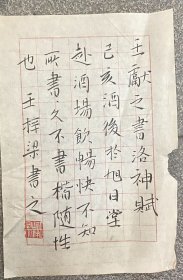 王献之書洛神賦
己亥酒後於旭日望
赴酒場飲暢快不知
所書久不書楷隨性
也 王梓梁書之